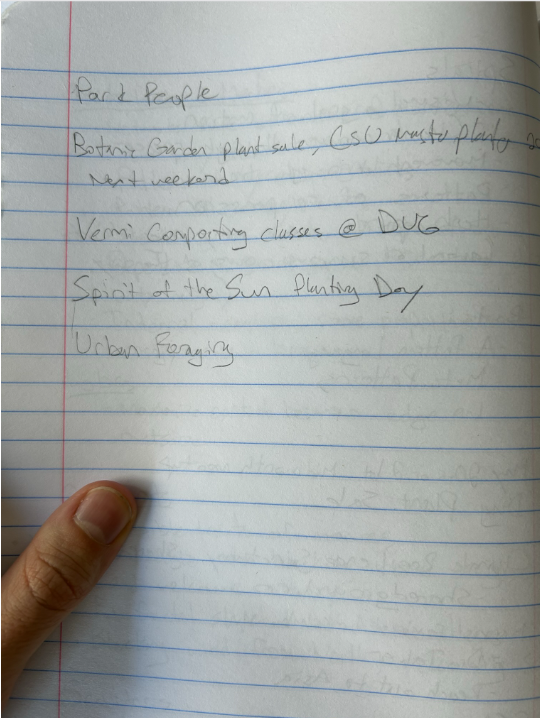 Park People
Botanic Garden plant sale, CSU master plants
Next weekend
Vermi Composting classes @ DUG
Spirit of the Sun Planting Day
Urban Foraging